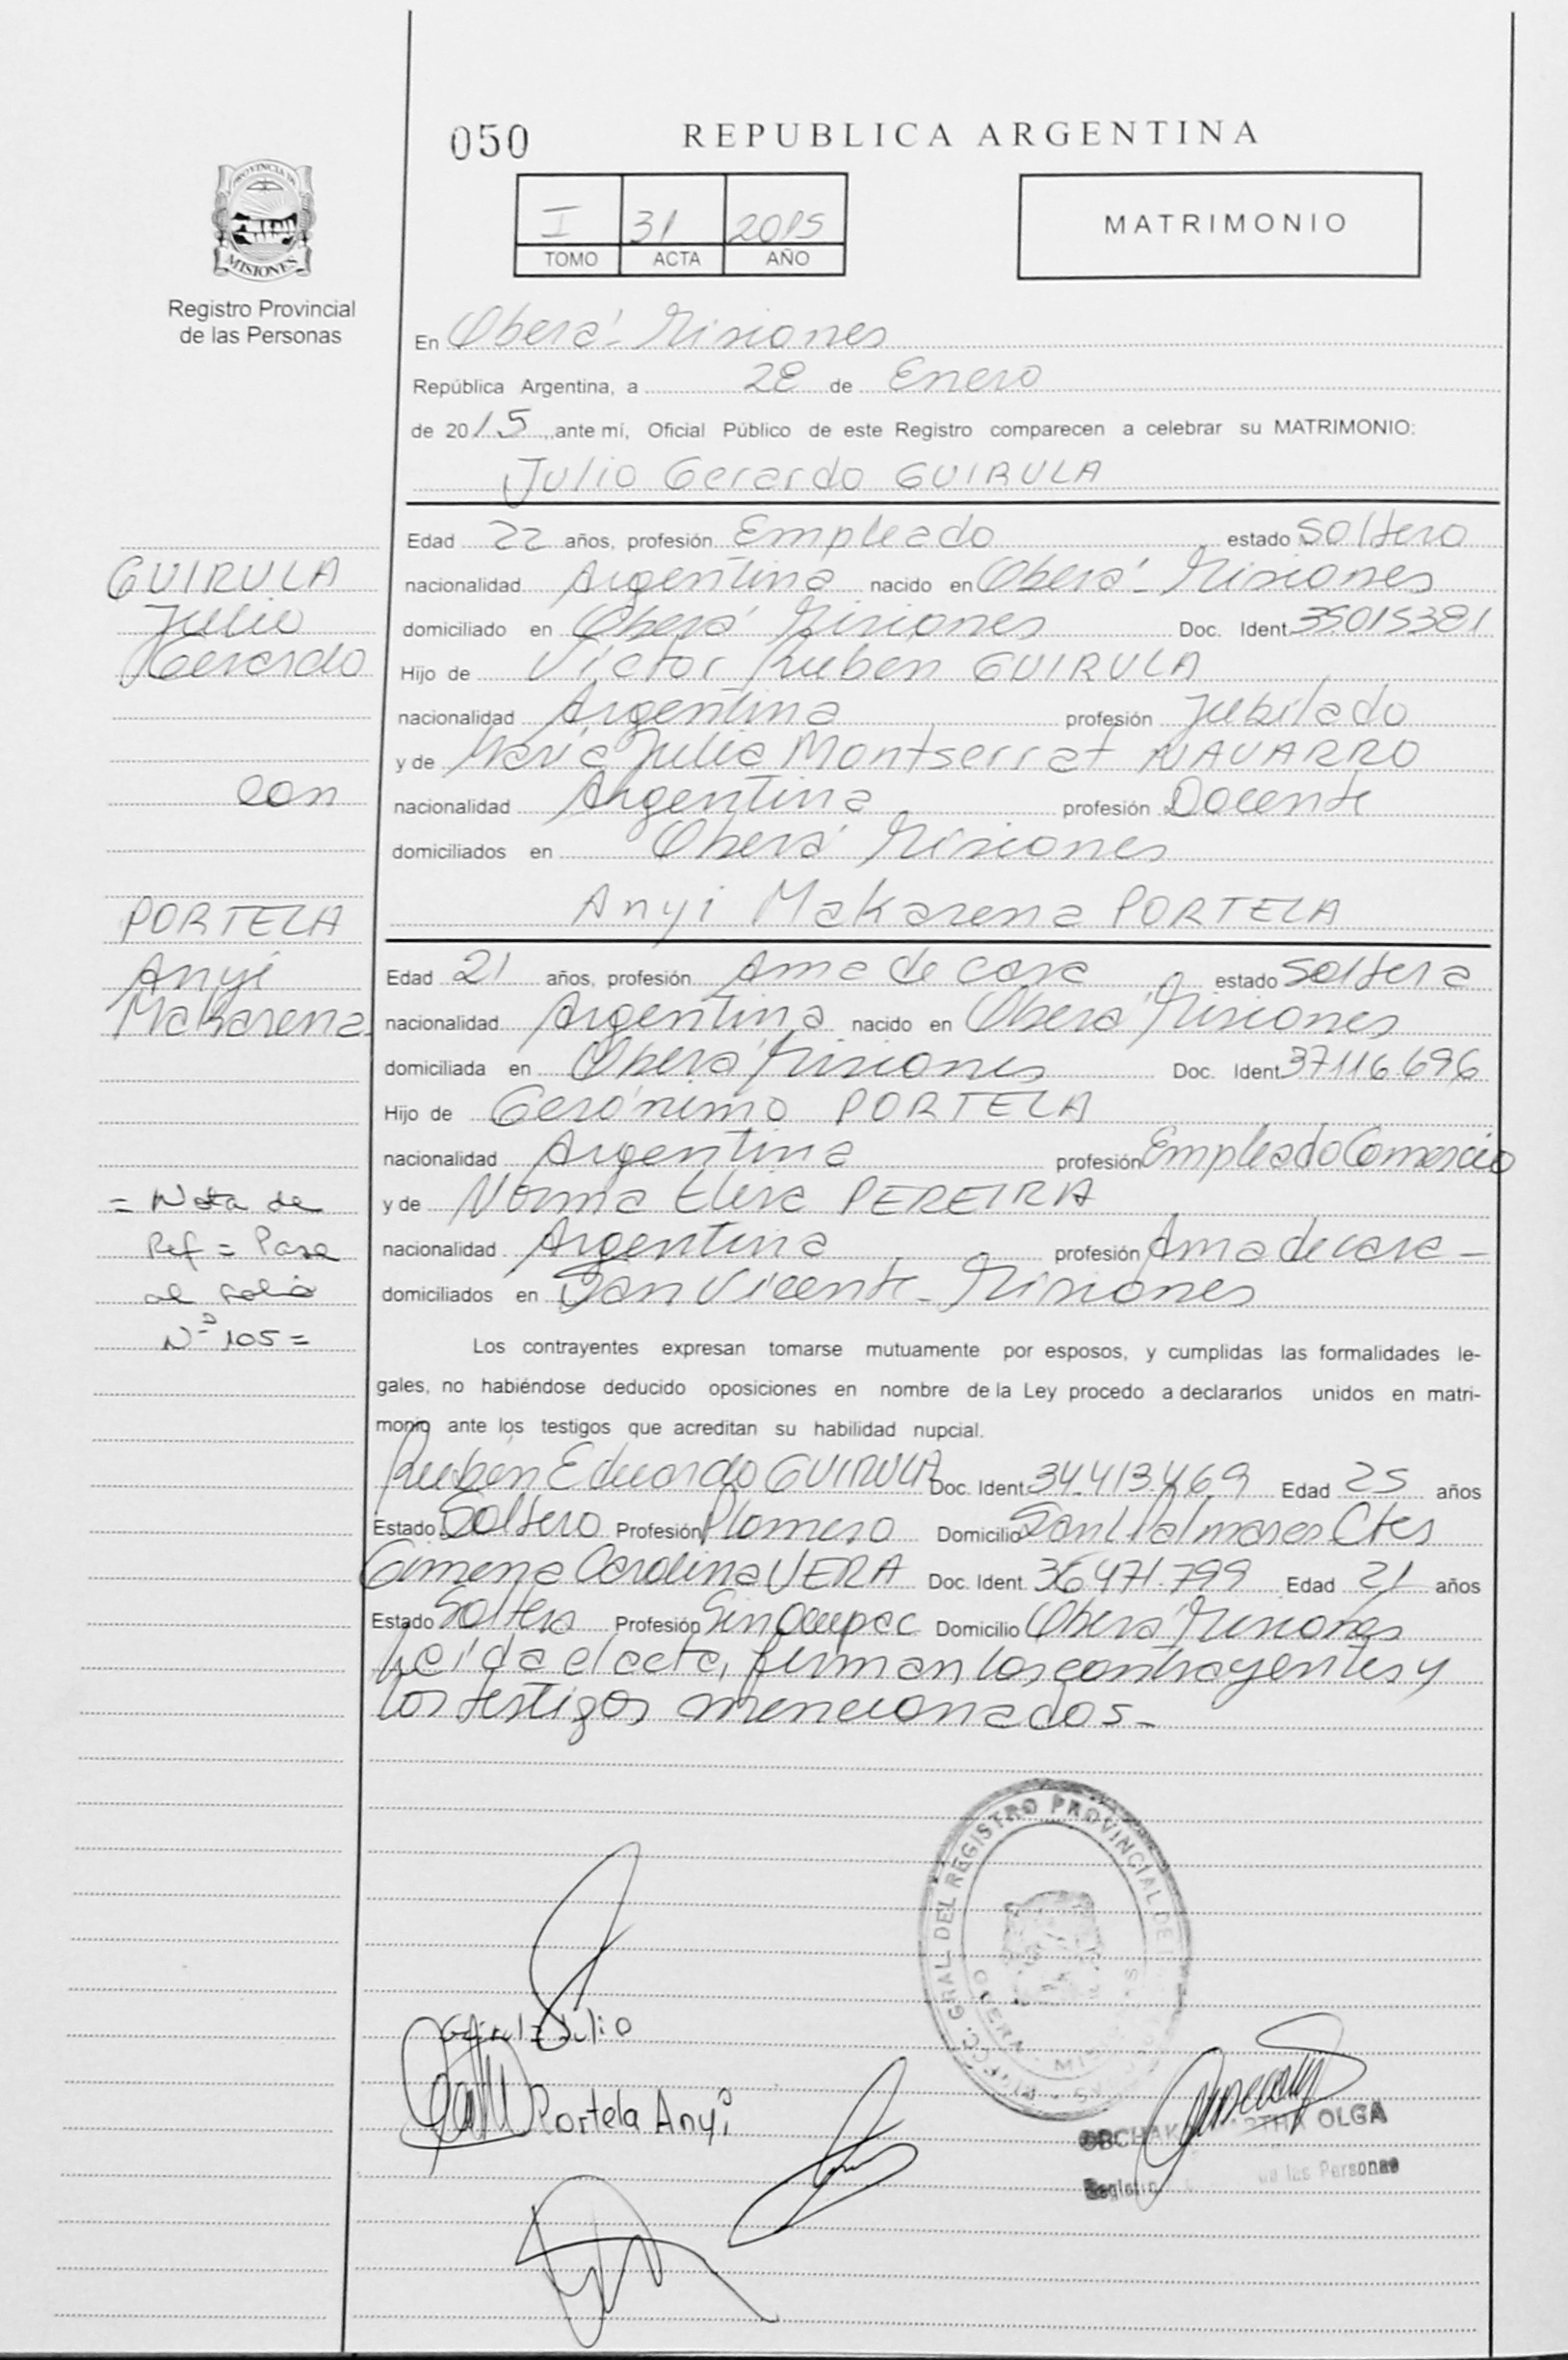 050
REPUBLICA ARGENTINA
PROVINCIA DE
MISIONES
Registro Provincial
de las Personas
I 31 2015
TOMO ACTA AÑO
MATRIMONIO
En Oberá - Misiones
República Argentina, a 28 de Enero
de 2015, ante mí, Oficial Público de este Registro comparecen a celebrar su MATRIMONIO:
Julio Gerardo GUIRULA
Edad 22 años, profesión Empleado estado Soltero
nacionalidad Argentina nacido en Oberá - Misiones
domiciliado en Oberá Misiones Doc. Ident. 35015381
Hijo de Victor Ruben GUIRULA
nacionalidad Argentina profesión Jubilado
y de Maria Julia Montserrat NAVARRO
nacionalidad Argentina profesión Docente
domiciliados en Oberá Misiones
Anyi Makarena PORTELA
Edad 21 años, profesión Ama de casa estado Soltera
nacionalidad Argentina nacido en Oberá Misiones
domiciliada en Oberá Misiones Doc. Ident. 37116696
Hijo de Gerónimo PORTELA
nacionalidad Argentina profesión Empleado Comercio
y de Norma Elisa PEREIRA
nacionalidad Argentina profesión Ama de casa -
domiciliados en San Vicente - Misiones
Los contrayentes expresan tomarse mutuamente por esposos, y cumplidas las formalidades le-
gales, no habiéndose deducido oposiciones en nombre de la Ley procedo a declararlos unidos en matri-
monio ante los testigos que acreditan su habilidad nupcial.
Rubén Eduardo GUIRULA Doc. Ident. 34.413.469 Edad 25 años
Estado Soltero Profesión Plomero Domicilio San L. Palmares Ctes
Gimena Carolina VERA Doc. Ident. 36471.799 Edad 21 años
Estado Soltera Profesión Sin Ocupac Domicilio Oberá Misiones
Leída el acta, firman los contrayentes y
los testigos mencionados -
GUIRULA
Julio
Gerardo
con
PORTELA
Anyi
Makarena
= Nota de
Ref = Pase
al folio
Nº 105 =
GRAL. DEL REGISTRO PROVINCIAL DE
Julio
Portela Anyi
OLGA
de las Personas